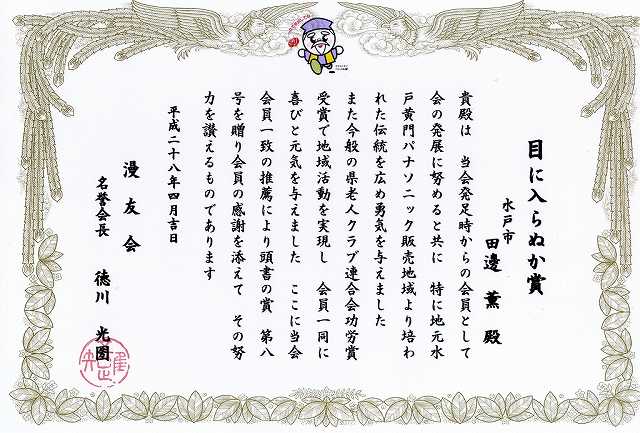 目に入らぬか賞
水戸市
田邊 薫 殿
貴殿は 当会発足時からの会員として
会の発展に努めると共に 特に地元水
戸黄門パナソニック販売地域より培わ
れた伝統を広め勇気を与えました
また今般の県老人クラブ連合会功労賞
受賞で地域活動を実現し 会員一同に
喜びと元気を与えました ここに当会
会員一致の推薦により頭書の賞 第八
号を贈り会員の感謝を添えて その努
力を讃えるものであります
平成二十八年四月吉日
漫友会
名誉会長 徳川 光圀